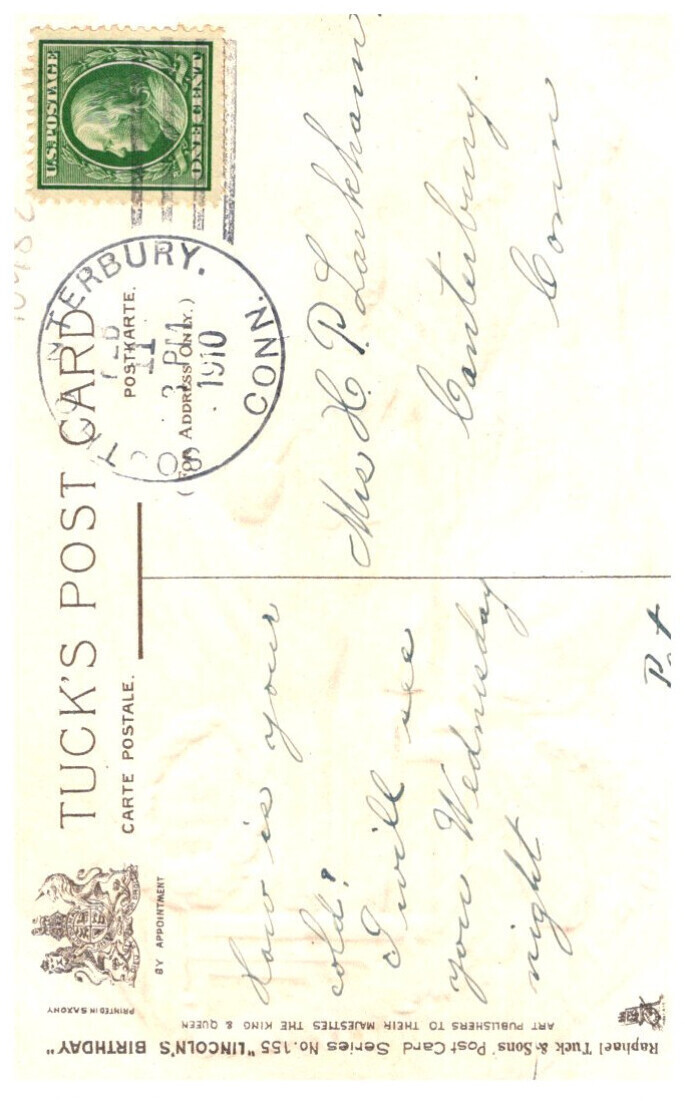 TUCK'S POST CARD
CARTE POSTALE.
POSTKARTE.
(FOR ADDRESS ONLY.)
BY APPOINTMENT
PRINTED IN SAXONY
U.S. POSTAGE
ONE CENT
NTERBURY.
FEB
11
3 PM
1910
CONN.
How is your
cold?
I will see
you Wednesday
night
Mrs H. P. Larkham
Canterbury.
Conn
Raphael Tuck & Sons' Post Card Series No. 155 "LINCOLN'S BIRTHDAY"
ART PUBLISHERS TO THEIR MAJESTIES THE KING & QUEEN